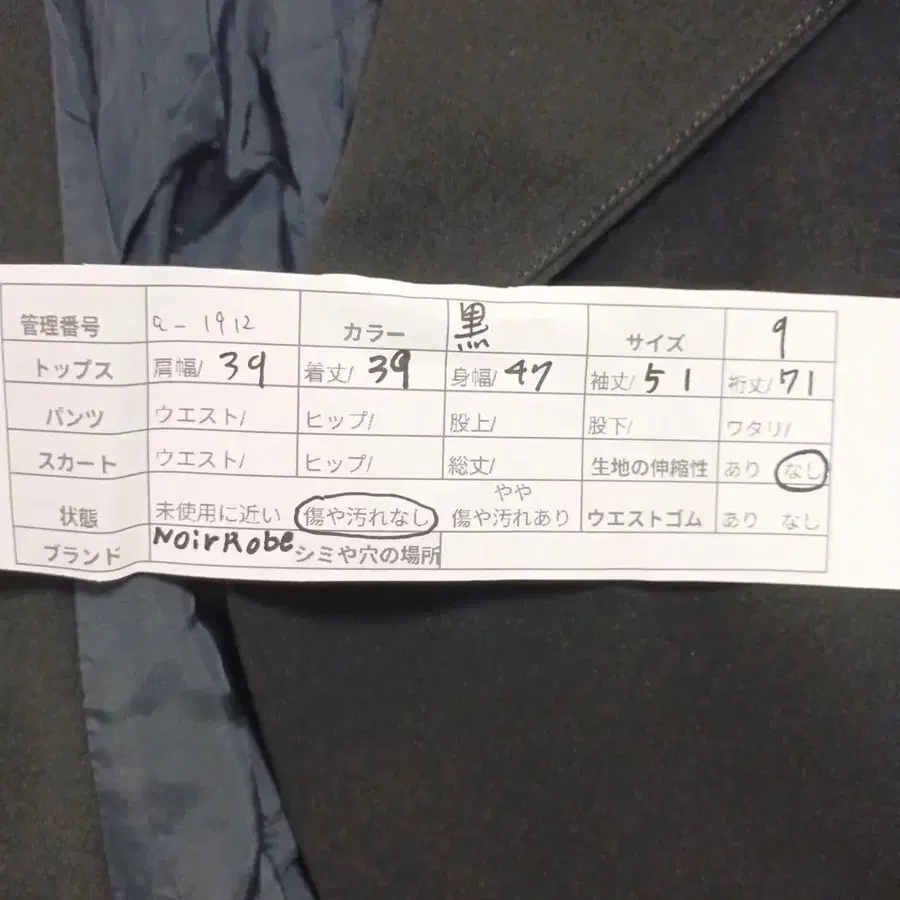 管理番号 a-1912 カラー 黒 サイズ 9
トップス 肩幅/ 39 着丈/ 39 身幅/ 47 袖丈/ 51 裄丈/ 71
パンツ ウエスト/ ヒップ/ 股上/ 股下/ ワタリ/
スカート ウエスト/ ヒップ/ 総丈/ 生地の伸縮性 あり なし
状態 未使用に近い 傷や汚れなし やや傷や汚れあり ウエストゴム あり なし
ブランド NoirRobe シミや穴の場所